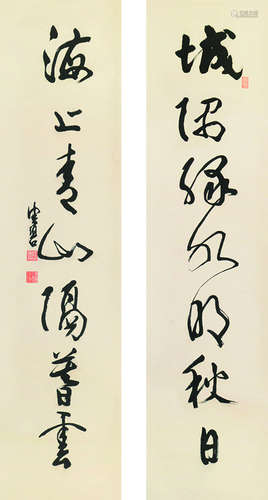 城隅綠水明秋日
海上青山隔暮雲